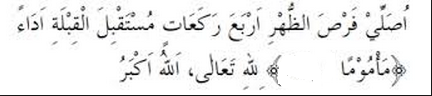 اُصَلِّيْ فَرْضَ الظُّهْرِ اَرْبَعَ رَكَعَاتٍ مُسْتَقْبِلَ الْقِبْلَةِ اَدَاءً
﴿مَأْمُوْمًا ﴾ لِلّٰهِ تَعَالٰى، اَللّٰهُ اَكْبَرُ